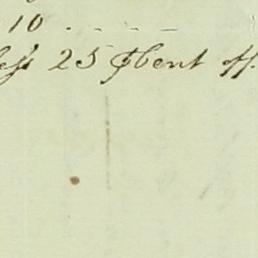 10 . . . . –
less 25 ⅌Cent off